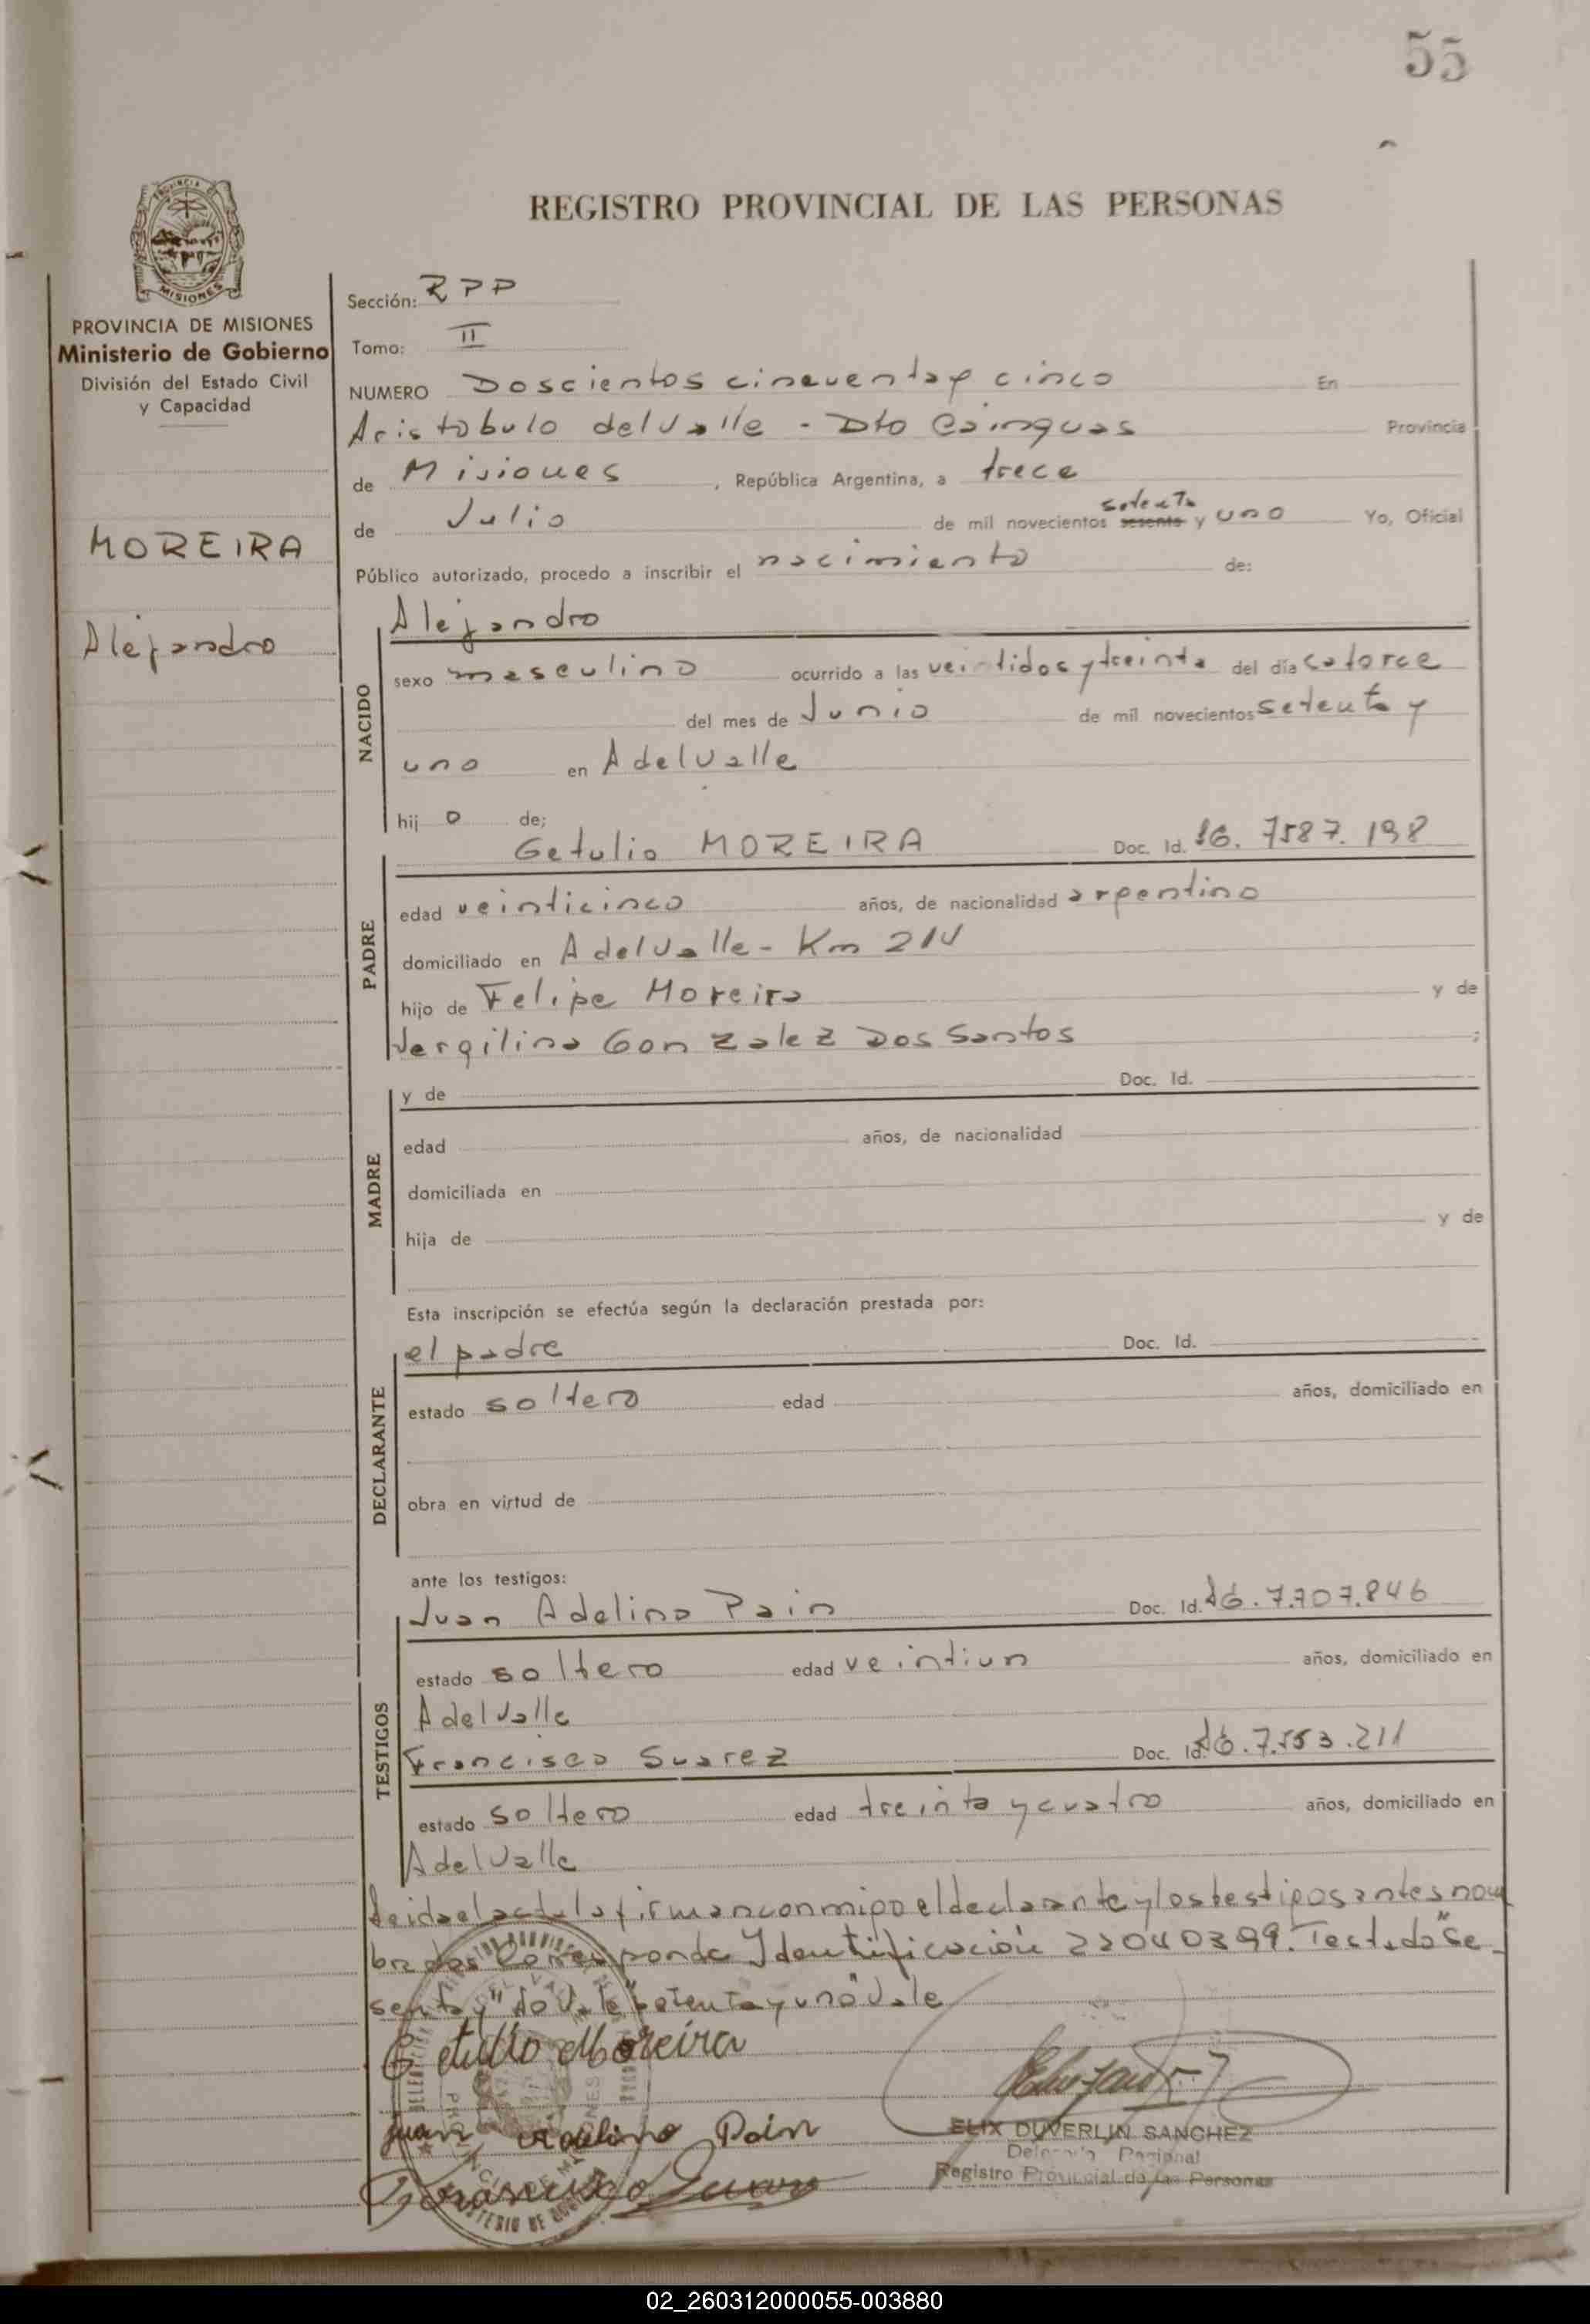 55
REGISTRO PROVINCIAL DE LAS PERSONAS
PROVINCIA DE MISIONES
Ministerio de Gobierno
División del Estado Civil
y Capacidad
MOREIRA
Alejandro
Sección: RPP
Tomo: II
NUMERO Doscientos cincuenta y cinco En
Aristobulo del Valle - Dto Cainguas Provincia
de Misiones, República Argentina, a trece
de Julio de mil novecientos sesenta setenta y uno Yo, Oficial
Público autorizado, procedo a inscribir el nacimiento de:
NACIDO
Alejandro
sexo masculino ocurrido a las veintidos y treinta del día catorce
del mes de Junio de mil novecientos setenta y
uno en A del Valle
hijo de;
PADRE
Getulio MOREIRA Doc. Id. 16. 7587. 198
edad veinticinco años, de nacionalidad argentino
domiciliado en A del Valle - Km 214
hijo de Felipe Moreira y de
Vergilina Gonzalez Dos Santos ;
MADRE
y de Doc. Id.
edad años, de nacionalidad
domiciliada en
hija de y de
Esta inscripción se efectúa según la declaración prestada por:
DECLARANTE
el padre Doc. Id.
estado soltero edad años, domiciliado en
obra en virtud de
ante los testigos:
TESTIGOS
Juan Adelino Pain Doc. Id. 16. 7.707.846
estado soltero edad veintiun años, domiciliado en
A del Valle
Francisco Suarez Doc. Id. 16. 7.553.211
estado soltero edad treinta y cuatro años, domiciliado en
A del Valle
Leida el acta la firman conmigo el declarante y los testigos antes nom
brados Corresponde Identificación 22040399. Testado "Se
senta y" no Vale "setenta y uno" Vale
Getulio Moreira
Juan Adelino Pain
Francisco Suarez
ELIX DUVERLIN SANCHEZ
Delegado Regional
Registro Provincial de las Personas
02_260312000055-003880